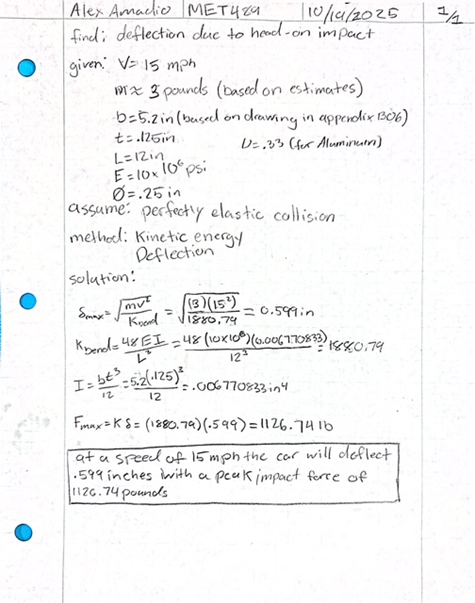 Alex Amadio | MET489 | 10/19/2025 1/1
find: deflection due to head-on impact
given: V = 15 mph
m ≈ 3 pounds (based on estimates)
b = 5.2 in (based on drawing in appendix B06)
t = .125in υ = .33 (for Aluminum)
L = 12 in
E = 10 x 10⁶ psi
Ø = .25 in
assume: perfectly elastic collision
method: Kinetic energy
Deflection
solution:
δmax = √(mv²/Kbend) = √((3)(15²)/1880.79) = 0.599 in
Kbend = 48EI/L³ = 48(10x10⁶)(0.006770833)/12³ = 1880.79
I = bt³/12 = 5.2(.125)³/12 = .006770833 in4
Fmax = Kδ = (1880.79)(.599) = 1126.74 lb
at a speed of 15 mph the car will deflect
.599 inches with a peak impact force of
1126.74 pounds